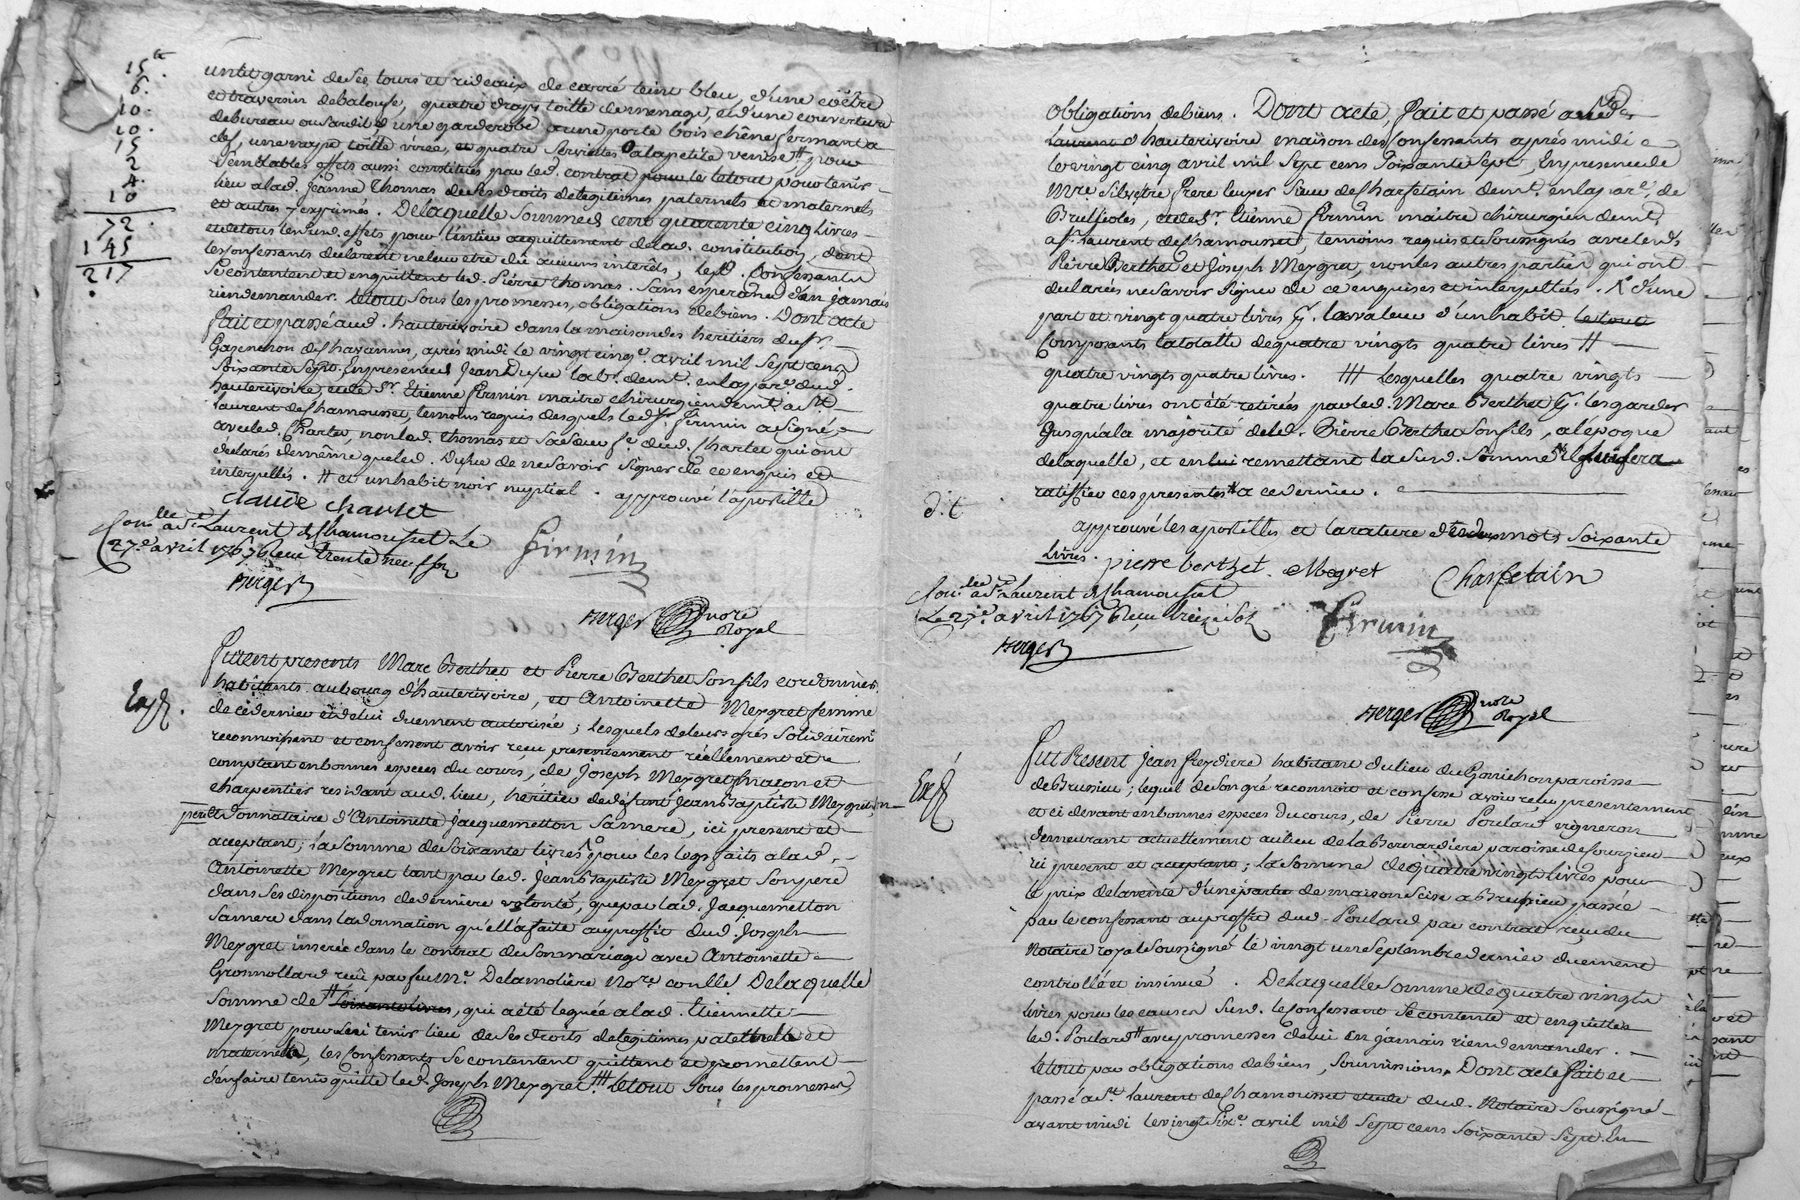 15tt
6.
10.
10.
15
2
4.
10
72.
145
217
un lit garni de ses tours et rideaux de carré teint bleu, d'une coëtre
et traversin de balouse, quatre draps toille de menage, et d'une couverture
de bureau ou sardit d'une garderobe a une porte bois chêne fermant a
clef, une nappe toille virée, et quatre serviettes a la petite venise # pour
semblables effets aussi constitués par led. contrat pour le tout pour tenir
lieu a lad. Jeanne Thomas de ses droits de legitimes paternels et maternels
et autres y exprimés. De laquelle somme de cent quarante cinq livres
et de tous les sud. effets pour l'entier acquittement de lad. constitution, dont
les confessants declarent ne leur etre dû aucuns interêts, lesd. confessants
se contentent et en quittent led. Pierre Thomas. Sans esperance d'en jamais
rien demander. le tout sous les promesses, obligations de biens. Dont acte
fait et passé aud. hauterivoire dans la maison des heritiers du Sr.
Gasenchon des havannes, après midi le vingt cinqe. avril mil sept cens
soixante sept. En presence de Jean Dupuy lab. demt. en la par. dud.
hauterivoire, et de Sr. Etienne Firmin maitre chirurgien demt. a St.
Laurent de Chamousset, temoins requis desquels led. Sr. Firmin a signé,
avec led. Charlet, non led. Thomas et sa sœur fe. dud. Charlet qui ont
déclarés de meme que led. Dupuy de ne savoir signer de ce enquis et
interpellés. # et un habit noir nuptial. approuvé l'apostille
claude charlet
Conllé a St. Laurent de Chamousset Le
27e. avril 1767 Reçu trente neuf sols
Firmin
Berger
Berger nore Royal
Exp.
Furent presents Marc Berthet et Pierre Berthet son fils cordonniers
habitants au bourg d'hauterivoire, et Antoinette Meygret femme
de ce dernier et de lui duement autorisée; lesquels de leurs grés solidairemt.
reconnoissent et confessent avoir reçu presentement réellement et
comptant en bonnes especes du cours, de Joseph Meygret maçon et
charpentier residant aud. lieu, héritier de défunt Jean Baptiste Meygret son
pere et donnataire d'Antoinette Jacquemetton sa mere, ici present et
acceptant; la somme de soixante livres pour les legs faits a lad.
Antoinette Meygret tant par led. Jean Baptiste Meygret son pere
dans ses dispositions de derniere volonté, que par lad. Jacquemetton
sa mere dans la donnation qu'ell'a faite au proffit dud. Joseph
Meygret inserée dans le contrat de son mariage avec Antoinette
Gronnollard reçu par feu Me. Delamolière nore. conllé De laquelle
somme de # soixante livres, qui a été leguée a lad. Etiennette
Meygret pour lui tenir lieu de ses droits de legitimes paternelle et
maternelle, les confessants se contentent quittent et promettent
d'en faire tenir quitte led. Joseph Meygret ### le tout sous les promesses,
obligations de biens. Dont acte, fait et passé a St.
Laurent d'hauterivoire maison des confessants après midi
le vingt cinq avril mil sept cens soixante sept, En presence de
Mre. Silvestre Frere Luxer Sieur de Charfetain demt. en la par. de
Brussieu, et de Sr. Etienne Firmin maitre chirurgien demt.
a St. Laurent de Chamousset, temoins requis et soussignés avec lesd.
Pierre Berthet et Joseph Meygret, non les autres parties qui ont
declarés ne savoir signer de ce enquises et interpellées. # d'une
part et vingt quatre livres p. la valeur d'un habit le tout
composants la totalle de quatre vingts quatre livres #
quatre vingts quatre livres. ### lesquelles quatre vingts
quatre livres ont été retirées par led. Marc Berthet p. les garder
jusqu'a la majorité dud. Pierre Berthet son fils, a l'époque
de laquelle, et en lui remettant la sud. somme il fera
ratiffier ces presentes a ce dernier.
d.t
approuvé les apostilles et la rature de deux mots soixante
livres. pierre berthet Megret Charfetain
Conllé a St. Laurent de Chamousset
Le 27e. avril 1767 Reçu treize sols
Firmin
Berger
Berger nore Royal
Exp.
Fut Present Jean Freydiere habitant du lieu du Gonichon paroisse
de Brussieu; lequel de son gré reconnoit et confesse avoir reçu presentement
et ci devant en bonnes especes du cours, de Pierre Poulard vigneron
demeurant actuellement au lieu de la Bernardiere paroisse de Sourcieu
ici present et acceptant; la somme de quatre vingts livres pour
le prix de la vente d'une partie de maison scise a Brussieu passée
par le confessant au proffit dud. Poulard par contrat reçu du
notaire royal soussigné le vingt un septembre dernier duement
controllé et insinué. De laquelle somme de quatre vingts
livres pour les causes sud. le confessant se contente et en quitte
led. Poulard # avec promesses de lui en jamais rien demander.
le tout par obligations de biens, soumissions. Dont acte fait et
passé a St. Laurent de Chamousset etude dud. Notaire soussigné
avant midi le vingt sixe. avril mil sept cens soixante sept. En